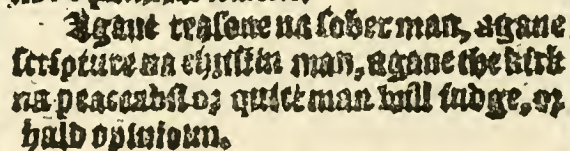 Agane reasone na sober man, agane
scripture na christin man, agane the kirk
na peaceabil or quiet man will iudge, or
hald opinioun.